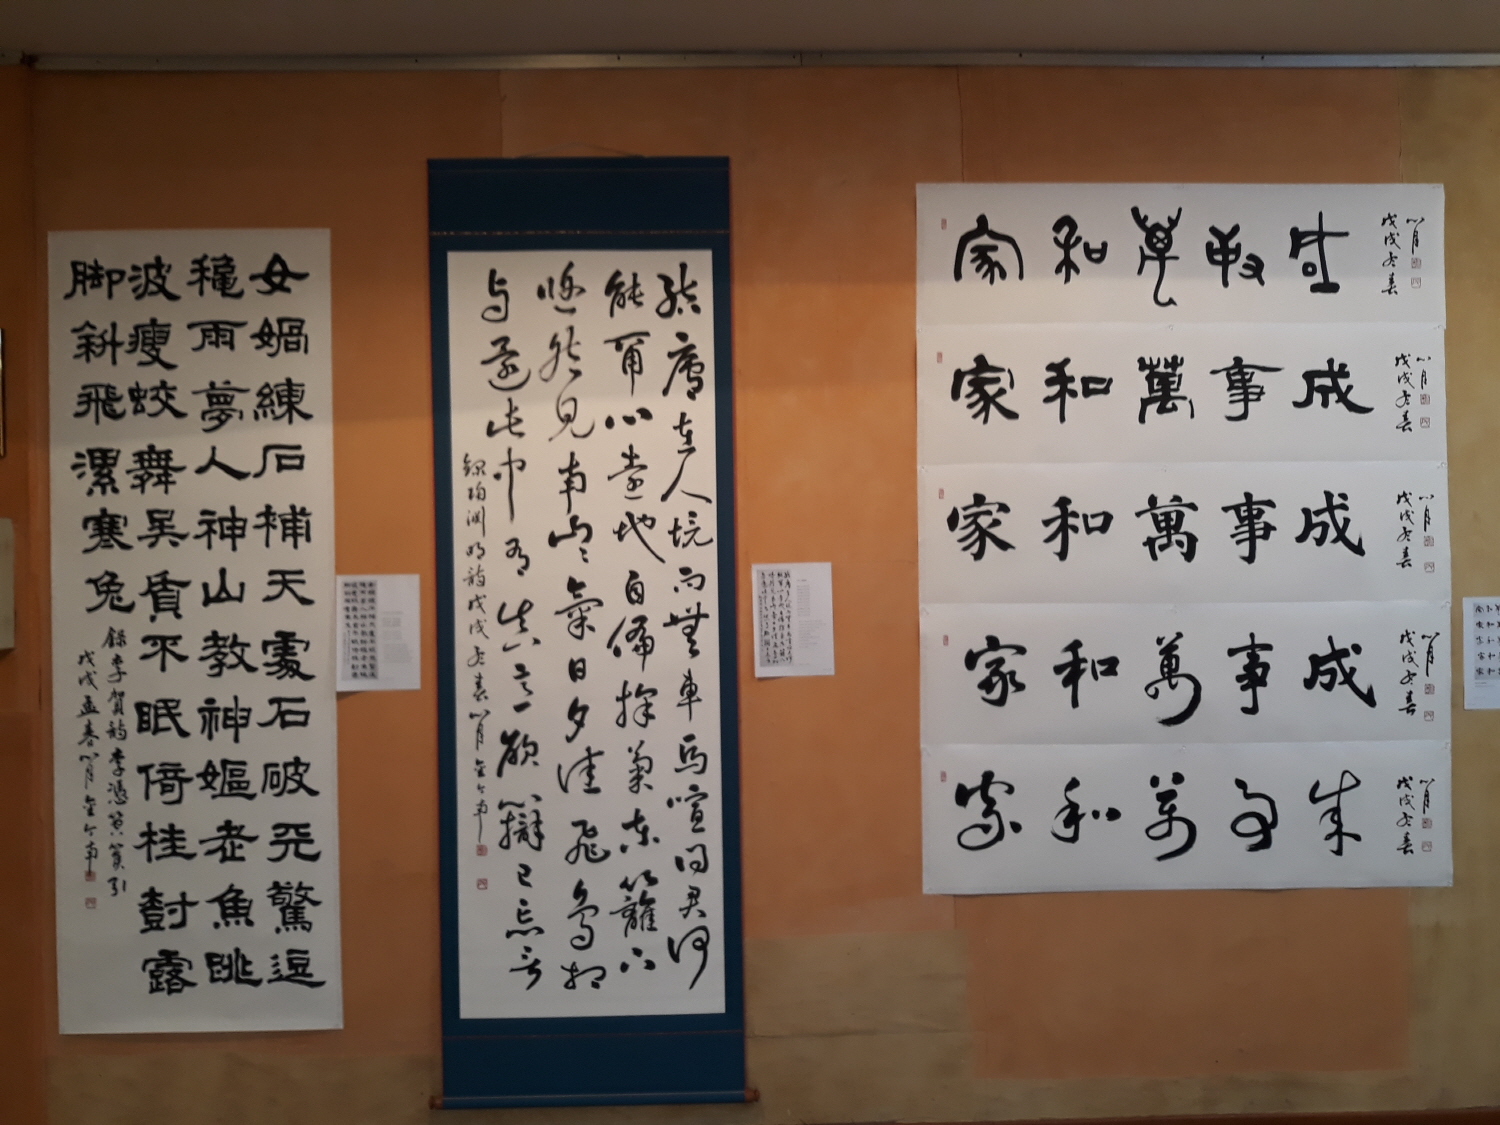 女媧練石補天處石破天驚逗
龝雨夢入神山教神嫗老魚跳
波瘦蛟舞吳質不眠倚桂樹露
脚斜飛濕寒兔
錄李賀詩李憑箜篌引
戊戌孟春
結廬在人境而無車馬喧問君何
能爾心遠地自偏採菊東籬下
悠然見南山々氣日夕佳飛鳥相
與還此中有真意欲辯已忘言
錄陶淵明詩戊戌春
家和萬事成
戊戌春
家和萬事成
戊戌春
家和萬事成
戊戌春
家和萬事成
戊戌春
家和萬事成
戊戌春